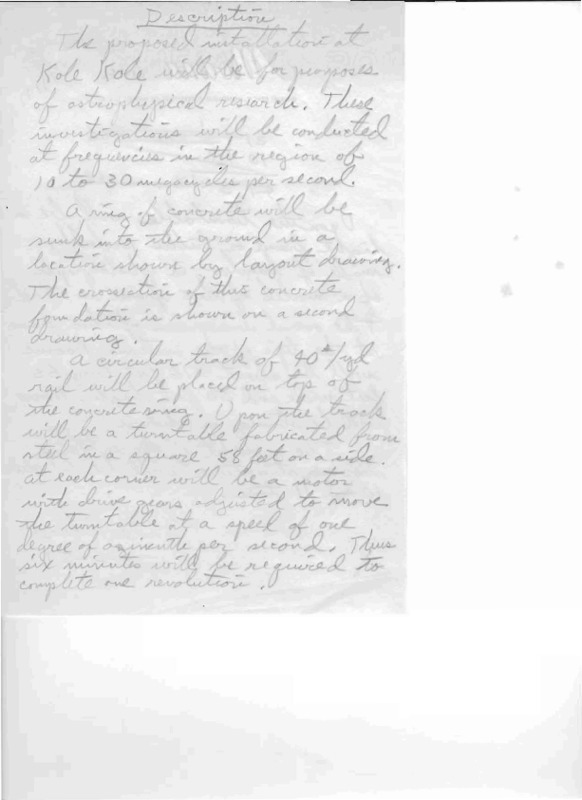 Description
The proposed installation at
Kole Kole will be for purposes
of astrophysical research. These
investigations will be conducted
at frequencies in the region of
10 to 30 megacycles per second.
A ring of concrete will be
sunk into the ground in a
location shown by layout drawing.
The crossection of this concrete
foundation is shown on a second
drawing.
A circular track of 40#/yd
rail will be placed on top of
the concrete ring. Upon the track
will be a turntable fabricated from
steel in a square 58 feet on a side.
At each corner will be a motor
with drive gears adjusted to move
the turntable at a speed of one
degree of azimuth per second. Thus
six minutes will be required to
complete one revolution.